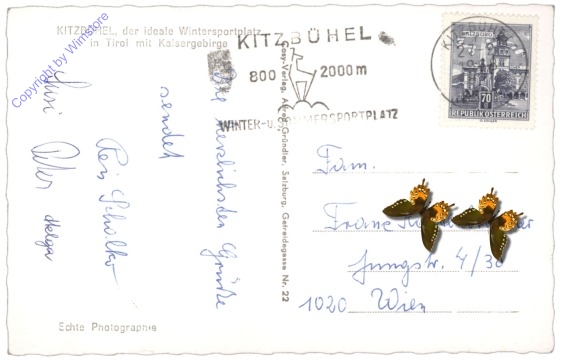 KITZBÜHEL, der ideale Wintersportplatz
in Tirol mit Kaisergebirge
Copyright by Winstore
KITZBÜHEL
800 2000 m
WINTER-U. SOMMERSPORTPLATZ
KITZBÜHEL
70
REPUBLIK ÖSTERREICH
Die herzlichsten Grüße
sendet
Peter Helga
Cosy-Verlag, Alfred Gründler, Salzburg, Getreidegasse Nr. 22
Fam.
Franz
Jungstr. 4/30
1020 Wien
Echte Photographie